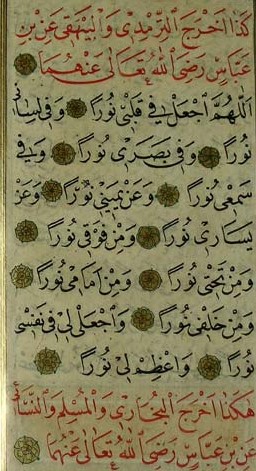 كَذَا اَخْرَجَ التِّرْمِذِي وَالْبَيْهَقِي عَنِ بْنِ
عَبَّاسٍ رَضِيَ اللّٰهُ تَعَالٰى عَنْهُمَا
اَللّٰهُمَّ اجْعَلْ فِي قَلْبِي نُورًا وَفِي لِسَانِي
نُورًا وَفِي بَصَرِي نُورًا وَفِي
سَمْعِي نُورًا وَعَنْ يَمِينِي نُورًا وَعَنْ
يَسَارِي نُورًا وَمِنْ فَوْقِي نُورًا
وَمِنْ تَحْتِي نُورًا وَمِنْ اَمَامِي نُورًا
وَمِنْ خَلْفِي نُورًا وَاجْعَلْ لِي فِي نَفْسِي
نُورًا وَاَعْظِمْ لِي نُورًا
هٰكَذَا اَخْرَجَ الْبُخَارِي وَالْمُسْلِم وَالنَّسَائِي
عَنِ بْنِ عَبَّاسٍ رَضِيَ اللّٰهُ تَعَالٰى عَنْهُمَا